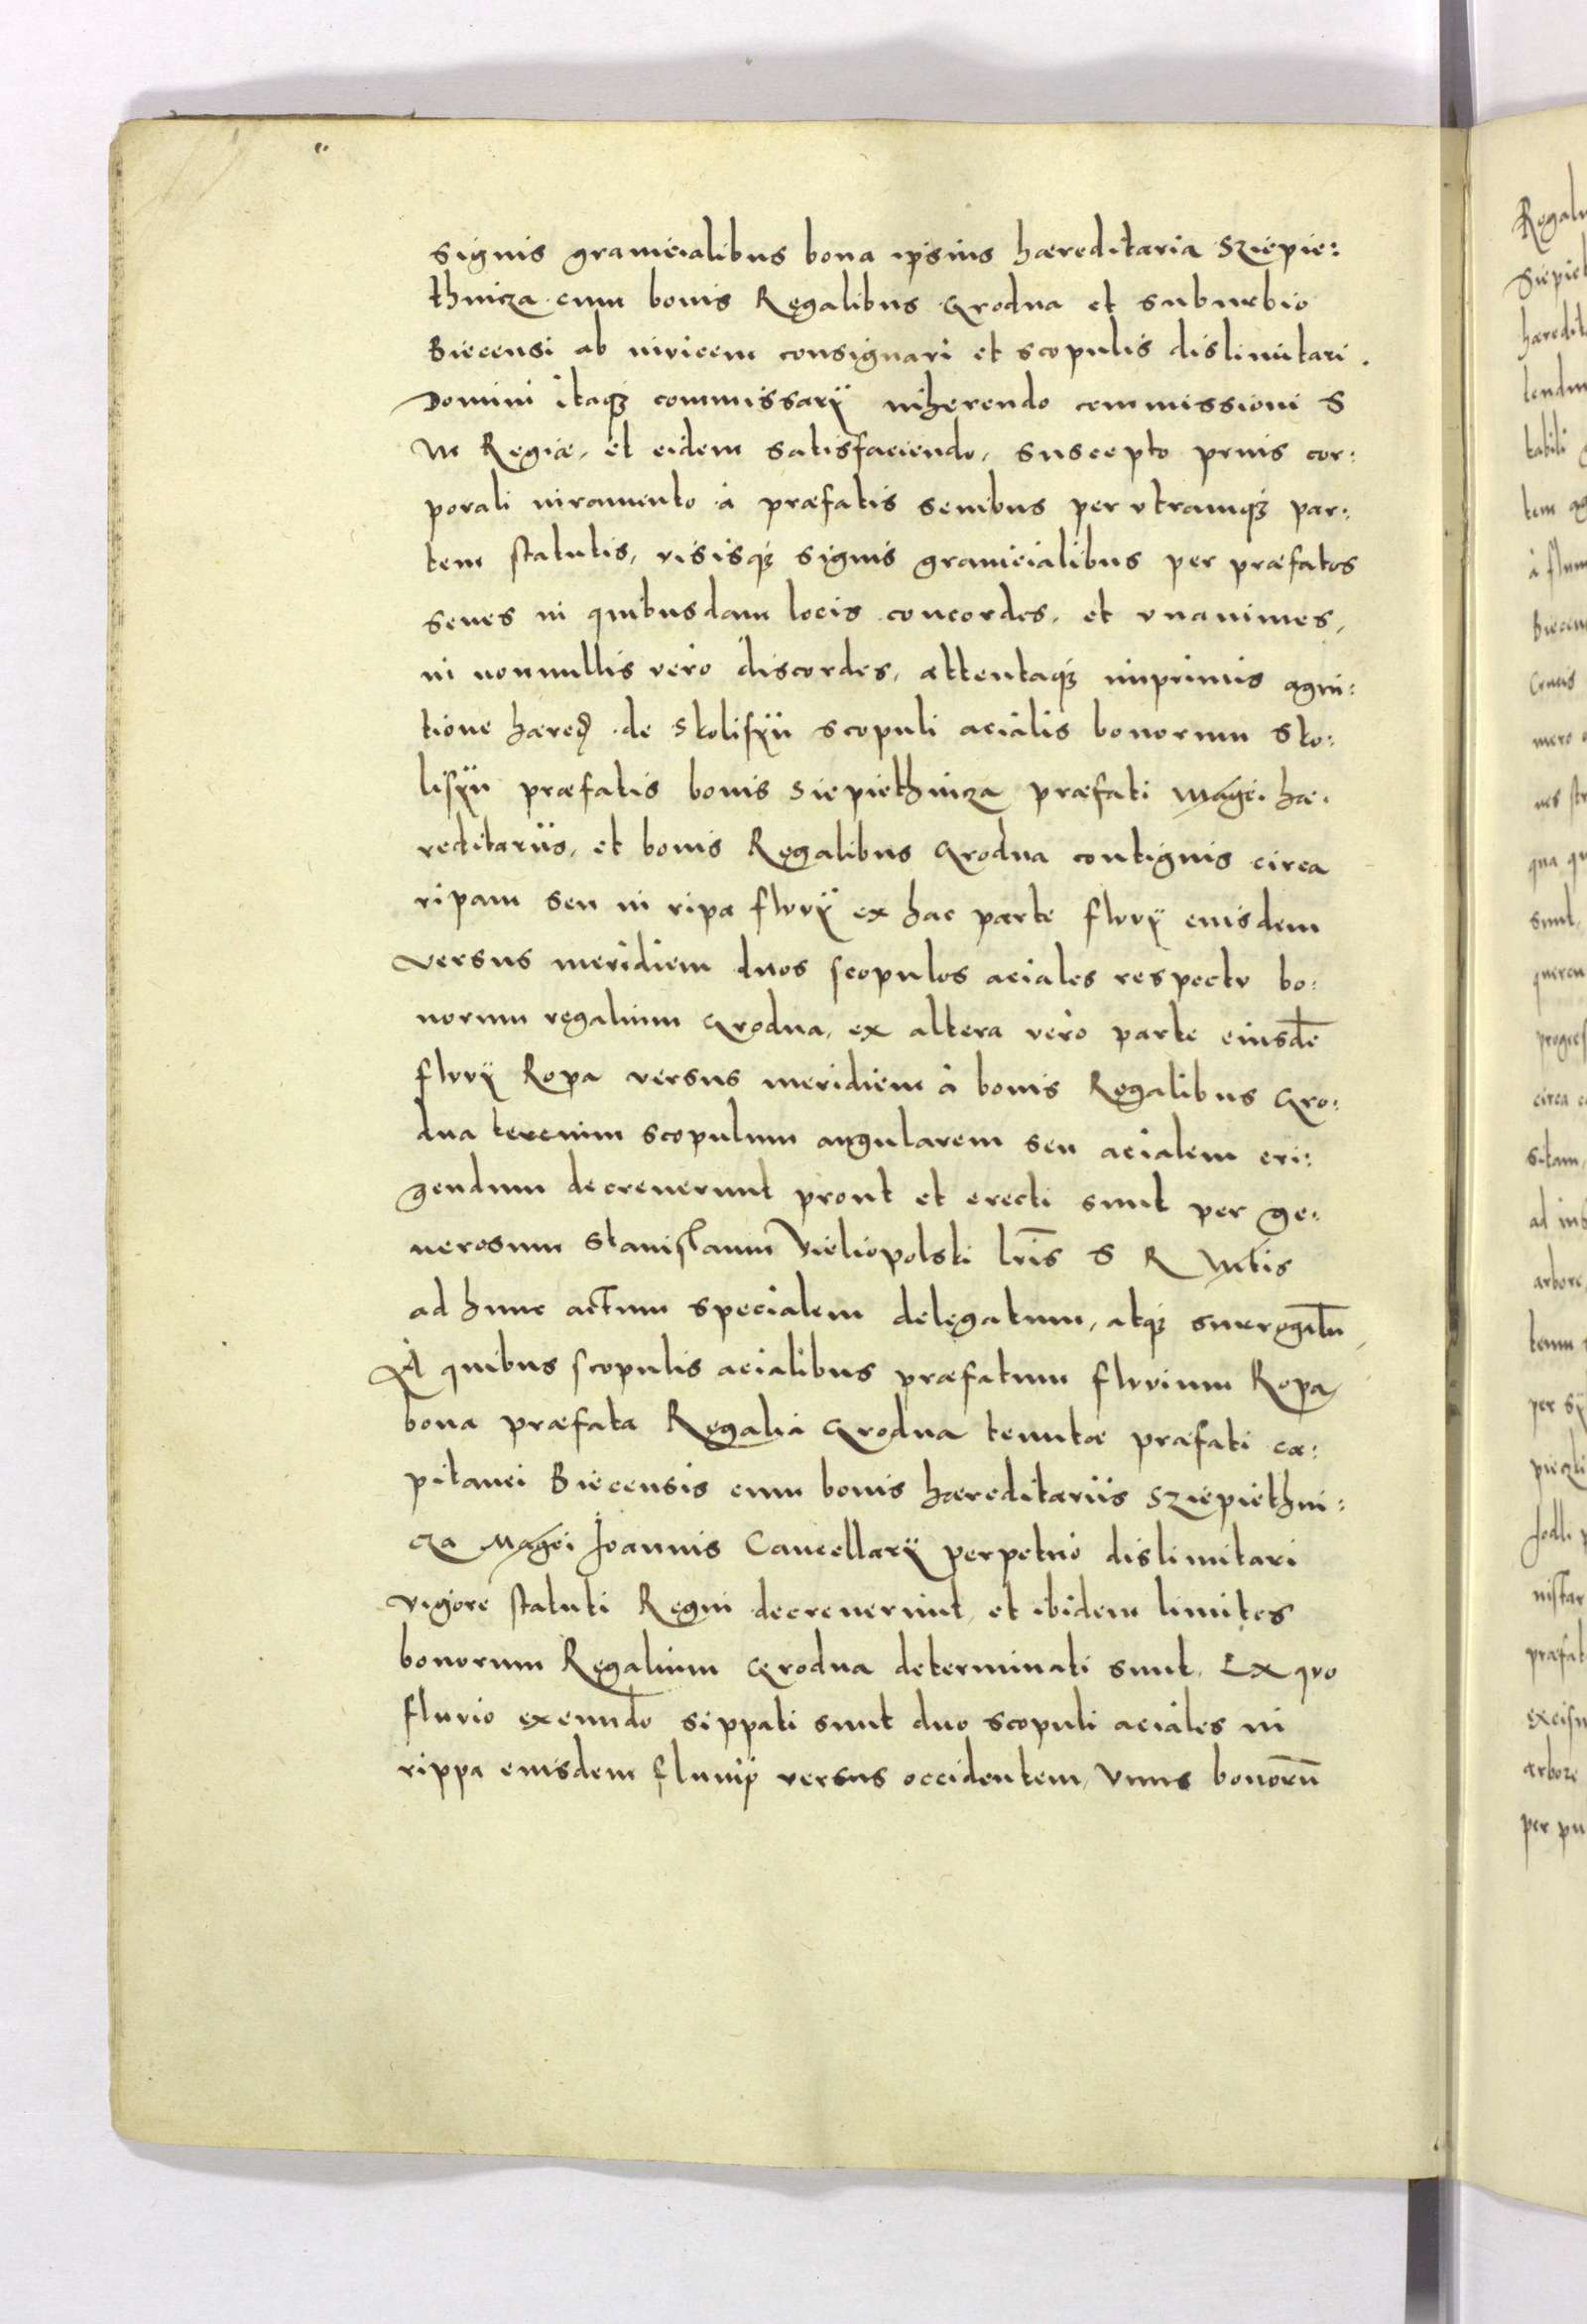 signis granicialibus bona ipsius hæreditaria Sziepie:
thnicza cum bonis Regalibus Grodna et suburbio
Biecensi ab invicem consignari et scopulis dislimitari.
Domini itaqꝫ commissarÿ inherendo commissioni S
M Regiæ, et eidem satisfaciendo, suscepto prius cor:
porali iuramento à præfatis senibus per vtramqꝫ par:
tem statutis, visisqꝫ signis granicialibus per præfatos
senes in quibusdam locis concordes, et vnanimes,
in nonnullis vero discordes, attentaqꝫ inprimis agni:
tione hæred de Skolisÿn scopuli acialis bonorum Sko:
lisÿn præfatis bonis Siepiethnicza præfati Magci hæ:
reditariis, et bonis Regalibus Grodna contiguis circa
ripam seu in ripa fluvÿ ex hac parte fluvÿ eiusdem
versus meridiem duos scopulos aciales respectu bo:
norum regalium Grodna, ex altera vero parte eiusdē
fluvÿ Ropa versus meridiem à bonis Regalibus Gro:
dna tercium scopulum angularem seu acialem eri:
gendum decreverunt prout et erecti sunt per ge:
nerosum Stanislaum Vieliopolski lris S R Mtis
ad hunc actum specialem delegatum, atqꝫ surrogatū,
A quibus scopulis acialibus præfatum fluvium Ropa,
bona præfata Regalia Grodna tenutæ præfati ca:
pitanei Biecensis cum bonis hæreditariis Sziepiethni:
cza Magci Joannis Cancellarÿ perpetuo dislimitari
vigore statuti Regni decreverunt, et ibidem limites
bonorum Regalium Grodna determinati sunt. Ex quo
fluvio exeundo sippati sunt duo scopuli aciales in
rippa eiusdem fluuiÿ versus occidentem, vnus bonorū